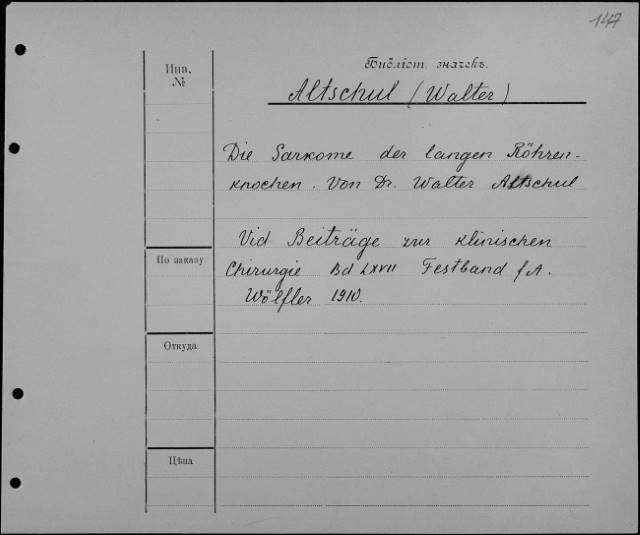 147
Инв. №
Библіот. значекъ.
Altschul (Walter)
Die Sarkome der langen Röhren-
knochen. Von Dr. Walter Altschul
Vid. Beiträge zur klinischen
По заказу
Chirurgie Bd LXVII Festband f. A.
Wölfler 1910.
Откуда
Цѣна